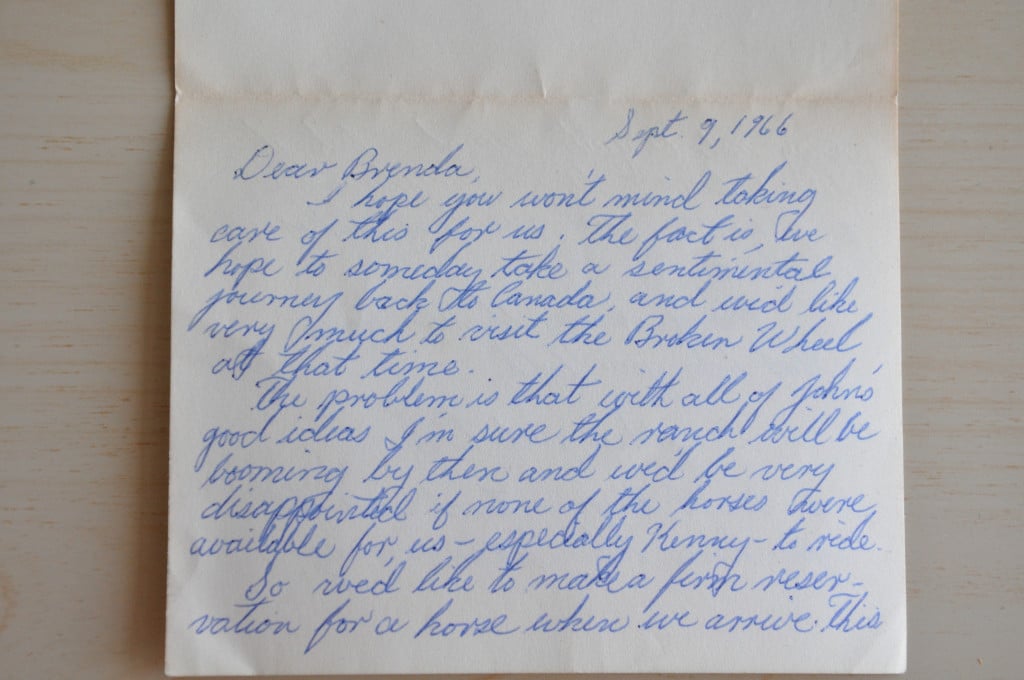 Sept. 9, 1966
Dear Brenda,
I hope you won't mind taking
care of this for us. The fact is, we
hope to someday take a sentimental
journey back to Canada, and we'd like
very much to visit the Broken Wheel
at that time.
The problem is that with all of John's
good ideas I'm sure the ranch will be
booming by then and we'd be very
disappointed if none of the horses were
available for us - especially Kenny - to ride.
So we'd like to make a firm reser-
vation for a horse when we arrive. This